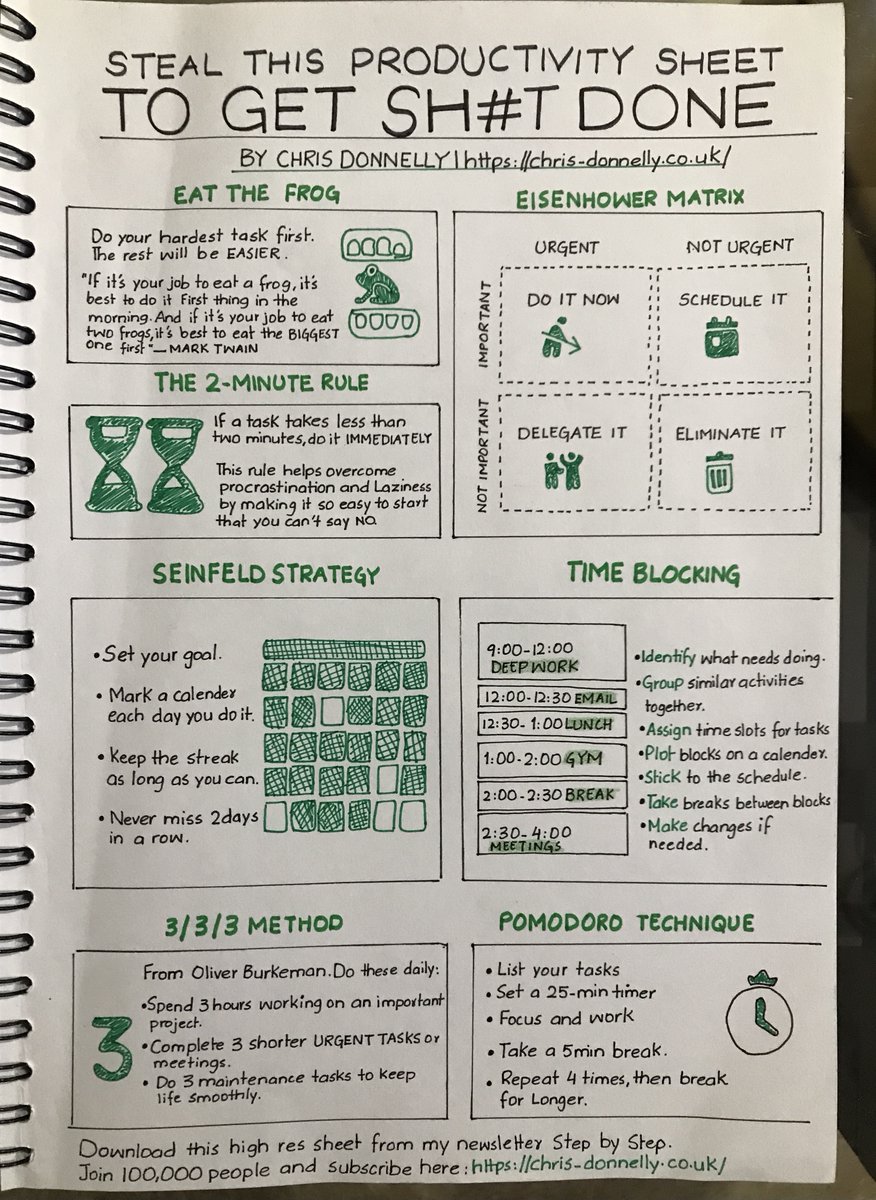 STEAL THIS PRODUCTIVITY SHEET
TO GET SH#T DONE
BY CHRIS DONNELLY | https://chris-donnelly.co.uk/
EAT THE FROG
Do your hardest task first.
The rest will be EASIER.
"If it's your job to eat a frog, it's
best to do it First thing in the
morning. And if it's your job to eat
two frogs, it's best to eat the BIGGEST
one first" — MARK TWAIN
EISENHOWER MATRIX
URGENT
NOT URGENT
IMPORTANT
DO IT NOW
SCHEDULE IT
NOT IMPORTANT
DELEGATE IT
ELIMINATE IT
THE 2-MINUTE RULE
If a task takes less than
two minutes, do it IMMEDIATELY
This rule helps overcome
procrastination and Laziness
by making it so easy to start
that you can't say NO.
SEINFELD STRATEGY
• Set your goal.
• Mark a calender
each day you do it.
• Keep the streak
as long as you can.
• Never miss 2days
in a row.
TIME BLOCKING
9:00-12:00
DEEP WORK
12:00-12:30 EMAIL
12:30- 1:00 LUNCH
1:00-2:00 GYM
2:00-2:30 BREAK
2:30-4:00
MEETINGS
• Identify what needs doing.
• Group similar activities
together.
• Assign time slots for tasks
• Plot blocks on a calender.
• Stick to the schedule.
• Take breaks between blocks
• Make changes if
needed.
3/3/3 METHOD
From Oliver Burkeman. Do these daily:
3
• Spend 3 hours working on an important
project.
• Complete 3 shorter URGENT TASKS or
meetings.
• Do 3 maintenance tasks to keep
life smoothly.
POMODORO TECHNIQUE
• List your tasks
• Set a 25-min timer
• Focus and work
• Take a 5min break.
• Repeat 4 times, then break
for Longer.
Download this high res sheet from my newsletter Step by Step.
Join 100,000 people and subscribe here: https://chris-donnelly.co.uk/